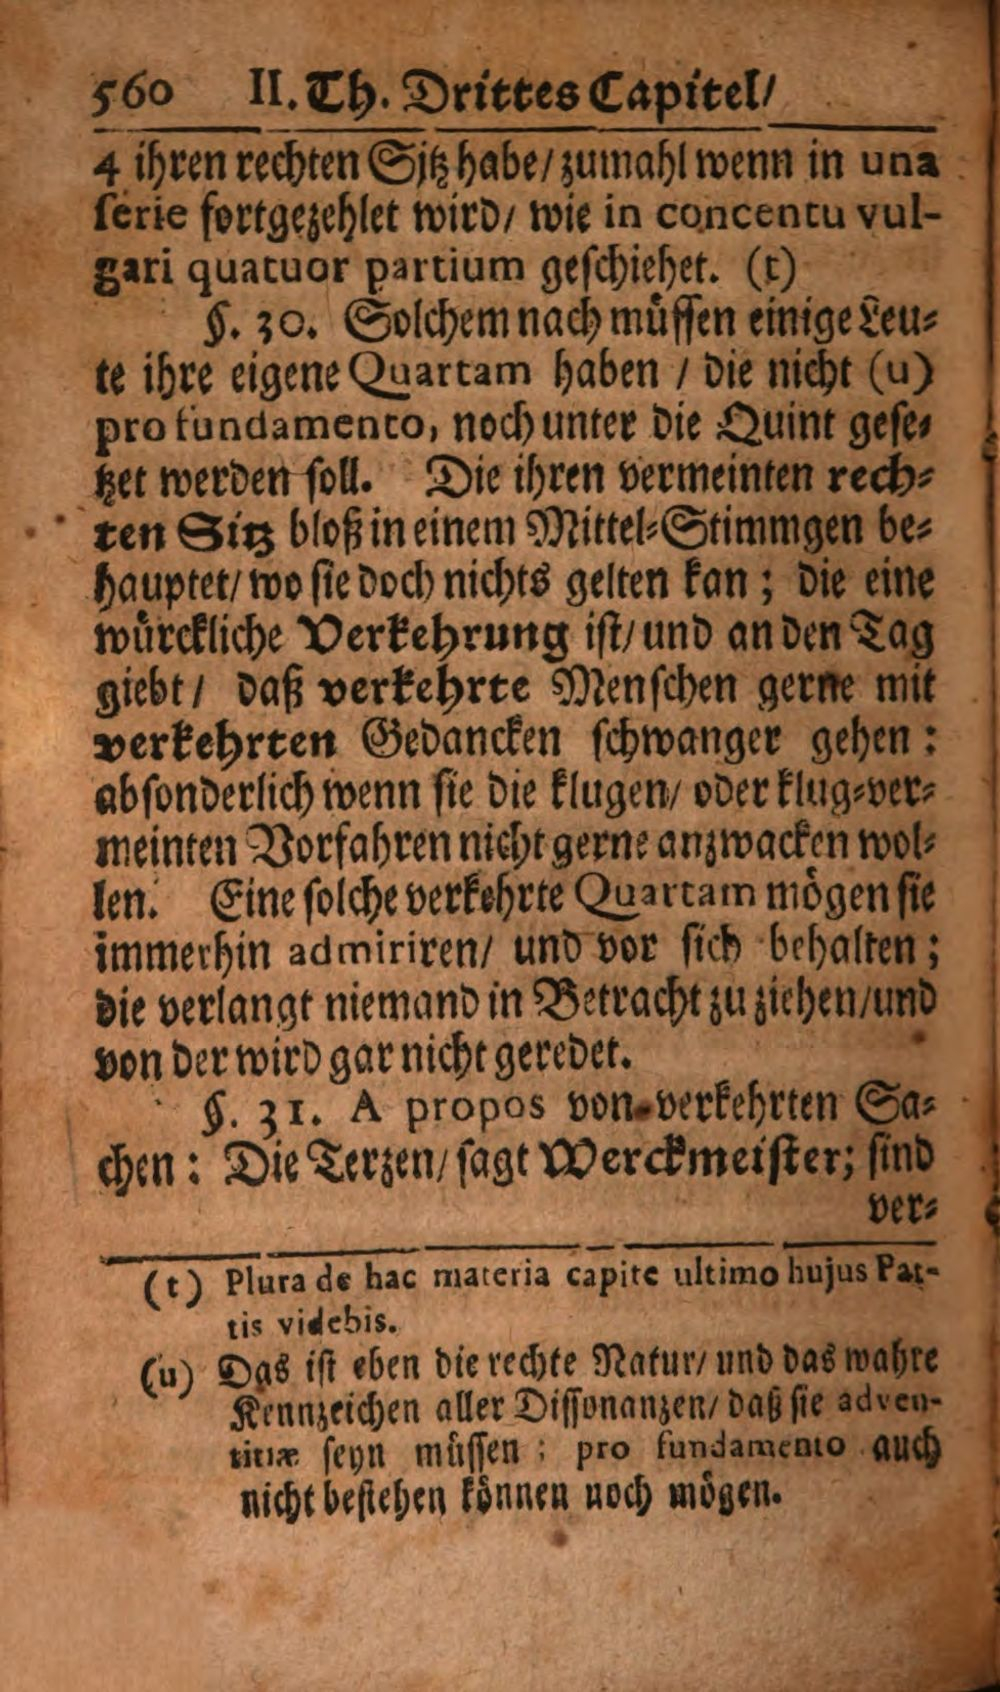 560 II. Th. Drittes Capitel/
4 ihren rechten Sitz habe/ zumahl wenn in una
serie fortgezehlet wird/ wie in concentu vul-
gari quatuor partium geschiehet. (t)
§. 30. Solchem nach müssen einige Leu-
te ihre eigene Quartam haben / die nicht (u)
pro fundamento, noch unter die Quint gese-
tzet werden soll. Die ihren vermeinten rech-
ten Sitz bloß in einem Mittel-Stimmgen be-
hauptet/ wo sie doch nichts gelten kan; die eine
würckliche Verkehrung ist/ und an den Tag
giebt/ daß verkehrte Menschen gerne mit
verkehrten Gedancken schwanger gehen:
absonderlich wenn sie die klugen/ oder klug-ver-
meinten Vorfahren nicht gerne anzwacken wol-
len. Eine solche verkehrte Quartam mögen sie
immerhin admiriren/ und vor sich behalten;
die verlangt niemand in Betracht zu ziehen/ und
von der wird gar nicht geredet.
§. 31. A propos von verkehrten Sa-
chen: Die Terzen/ sagt Werckmeister; sind
ver-
(t) Plura de hac materia capite ultimo hujus Par-
tis videbis.
(u) Das ist eben die rechte Natur/ und das wahre
Kennzeichen aller Dissonanzen/ daß sie adven-
titiæ seyn müssen; pro fundamento auch
nicht bestehen können noch mögen.